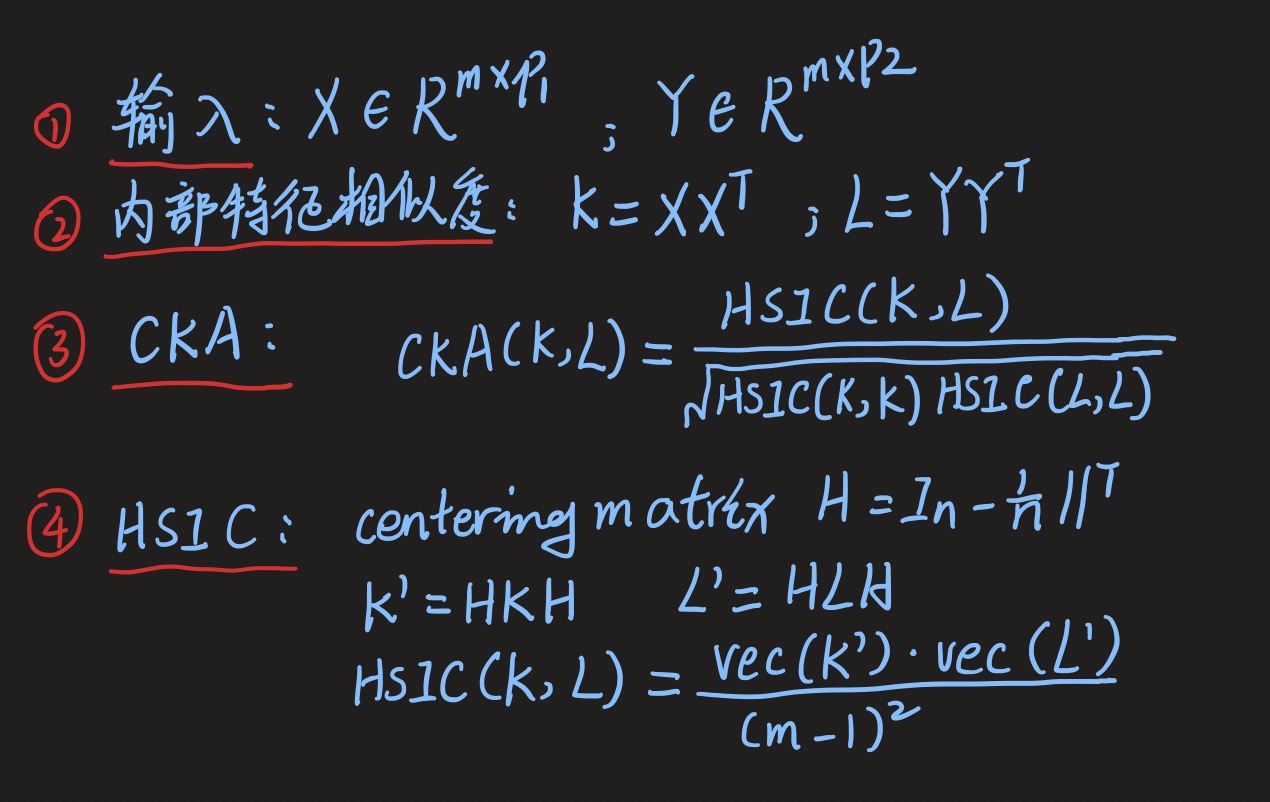 ① 输入: X ∈ R^{m×p_1} ; Y ∈ R^{m×p2}
② 内部特征相似度: K = XX^T ; L = YY^T
③ CKA: CKA(K,L) = \frac{HSIC(K,L)}{\sqrt{HSIC(K,K) HSIC(L,L)}}
④ HSIC: centering matrix H = I_n - \frac{1}{n} 11^T
K' = HKH L' = HLH
HSIC(K,L) = \frac{vec(K') · vec(L')}{(m-1)^2}